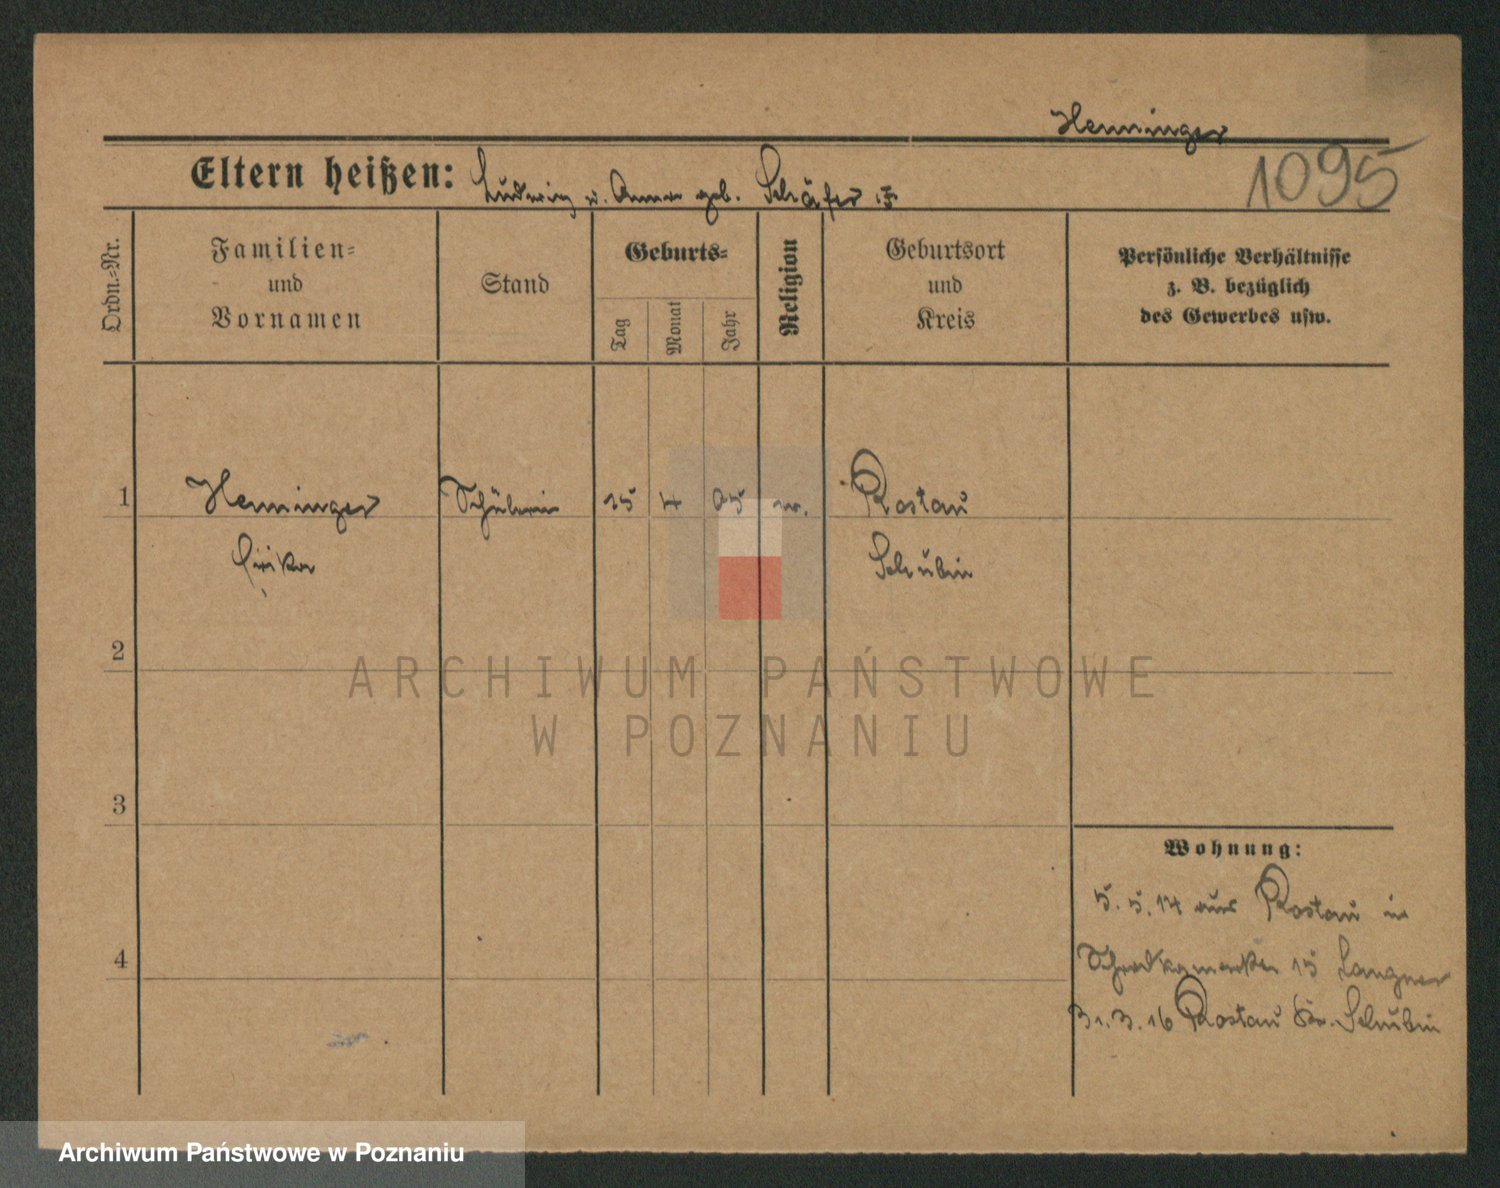 Henninger
1095
Eltern heißen: Ludwig u. Anna geb. Schäfer
Ordn.=Nr.
Familien=
und
Vornamen
Stand
Geburts=
Tag
Monat
Jahr
Religion
Geburtsort
und
Kreis
Persönliche Verhältnisse
z. B. bezüglich
des Gewerbes usw.
1 Henninger Schülerin 25 4 05 ev. Rostau
Schubin
2
ARCHIWUM PAŃSTWOWE
W POZNANIU
3
Wohnung:
5. 5. 14 aus Rostau in
15 Langner
4
31. 3. 16 Rostau Kr. Schubin
Archiwum Państwowe w Poznaniu